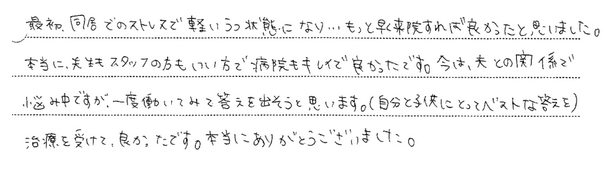 最初、同居でのストレスで軽いうつ状態になり…もっと早く来院すれば良かったと思いました。
本当に、先生もスタッフの方もいい方で病院もキレイで良かったです。今は、夫との関係で
悩み中ですが、一度働いてみて答えを出そうと思います。(自分と子供にとってベストな答えを)
治療を受けて、良かったです。本当にありがとうございました。